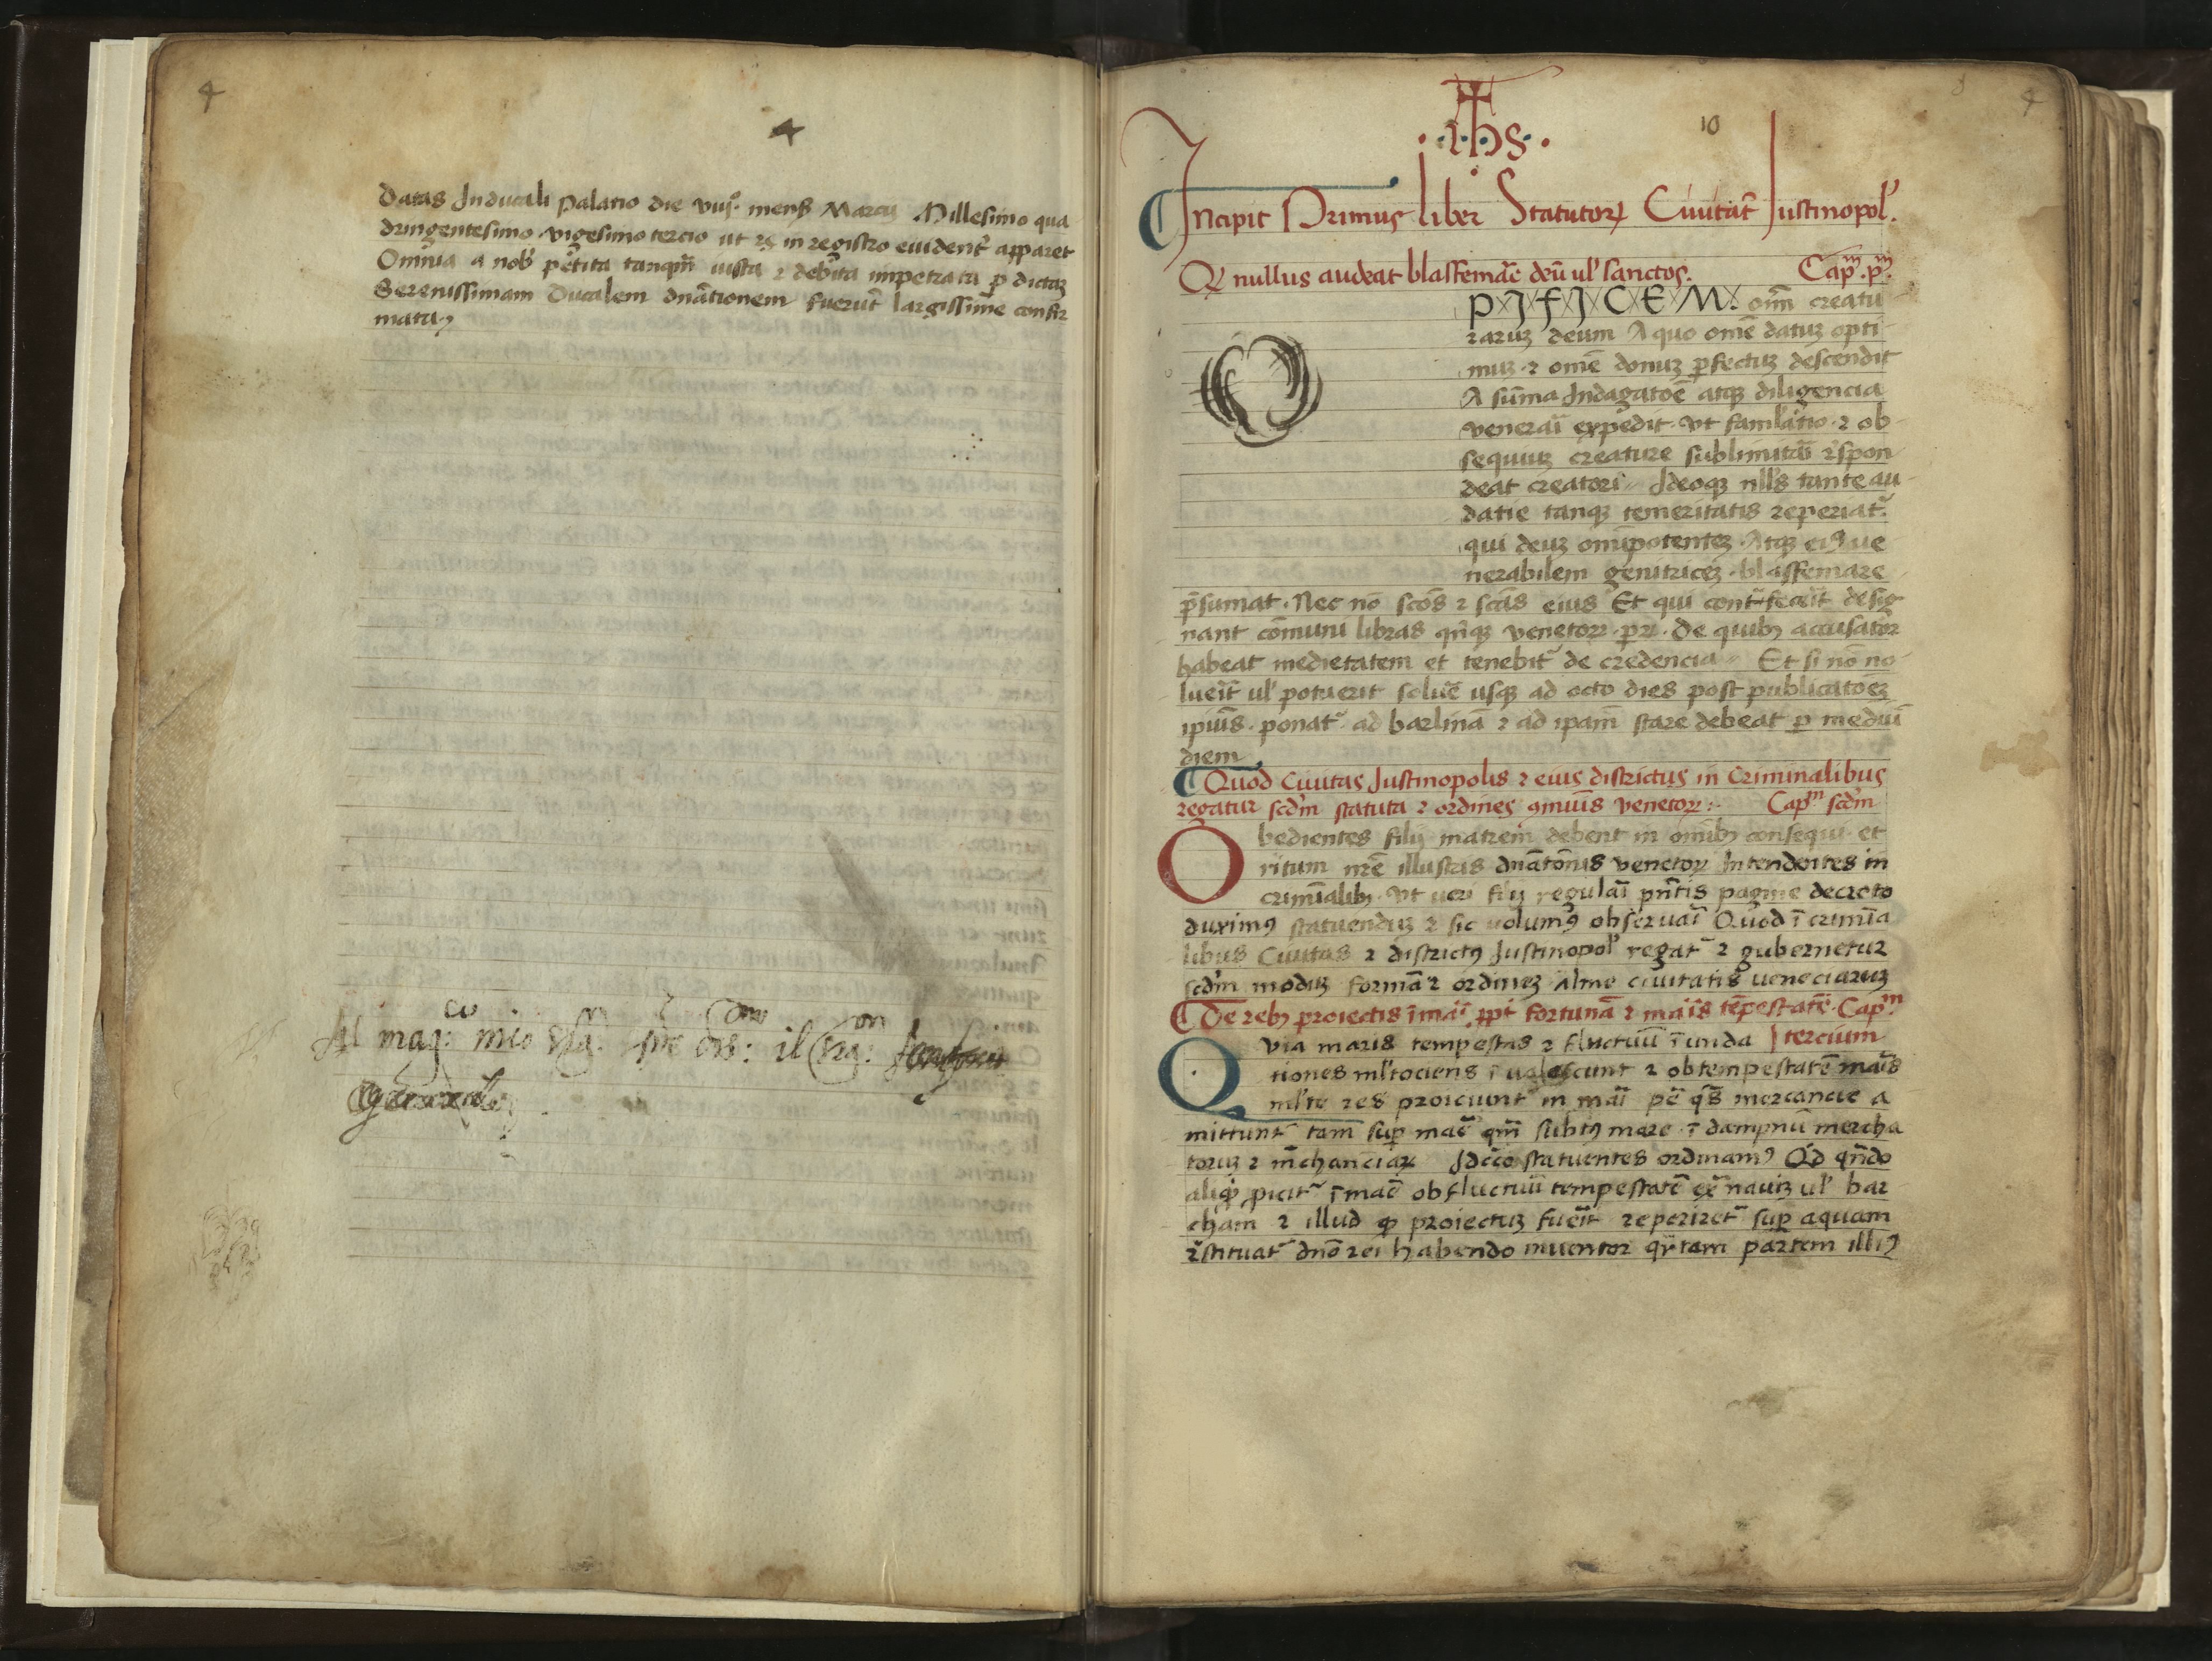 4
4
Datas In ducali palatio die viij. mens̄ Marcij Millesimo qua
dringentesimo vigesimo tercio ut in registro euident̄ apparet
Omnia a nob̄ petita tanq̄m iusta ⁊ debita impetrata p dictaꝫ
Serenissimam Ducalem dn̄ationem fuerūt largissime confir
mata
Al mag: mio
generale
8
4
10
.ihs.
Incipit Primus liber Statutoꝝ Ciuitat̄ Iustinopol'.
Q nullus audeat blasfemar̄e deū ul' sanctos. Capᵐ. pᵐ.
O
PIFICEM om̄ creatu
raruꝫ deum A quo om̄e datuꝫ opti
muꝫ ⁊ om̄e donuꝫ ꝑfectuꝫ descendit
A sūma Indagatōe atqꝫ diligencia
venerar̄i expedit. vt famil'atio ⁊ ob
sequiuꝫ creature sublimitati r̄spon
deat creatori Ideoqꝫ nll's tante au
datie tanqꝫ temeritatis reperiat̄
qui deuꝫ om̄ipotenteꝫ Atqꝫ eiꝰ ue
nerabilem genitriceꝫ blasfemare
p̄sumat. Nec nō scōs ⁊ scās eius Et qui cont̄fecer̄it desig
nant cōmuni libras qn̄qꝫ venetoꝝ. pꝝ. De quibꝫ accusator
habeat medietatem et tenebit̄ de credencia Et si nō no
luer̄it ul' potuerit soluer̄e usqꝫ ad octo dies post publicatōeꝫ
ipiūs. ponat̄ ad barlinā ⁊ ad ipam̄ stare debeat p mediū
diem
¶ Quod Ciuitas Iustinopolis ⁊ eius districtus in Criminalibus
regatur scd̄m statuta ⁊ ordines ꝯmuīs venetoꝝ: Capᵐ scd̄m
Obedientes filij matrem debent in om̄ibꝫ consequi. et
ritum nr̄e illustris dn̄atōnis venetoꝝ Intendentes in
crimīalibꝫ. Vt ueri filij regular̄i pn̄tis pagine decreto
duximꝰ statuenduꝫ ⁊ sic uolumꝰ obseruar̄i Quod ī crimīa
libus Ciuitas ⁊ districtꝰ Iustinopol' regat̄ ⁊ gubernetur
scd̄m moduꝫ formā ⁊ ordineꝫ alme ciuitatis ueneciaruꝫ
¶ De rebꝫ proiectis ī mar̄i ꝓpt̄ fortunā ⁊ mar̄is tēpestatē. Capᵐ
tercium
Quia maris tempestas ⁊ fluctuū īunda
tiones ml'tociens īualescunt ⁊ ob tempestatē mar̄is
ml'te res proiciunt̄ in mar̄i pēqꝫ mercancie a
mittunt̄ tam sup mar̄e qm̄ subtꝰ mare. ī dampnū mercha
toruꝫ ⁊ m̄chanciaꝝ Idcc̄o statuentes ordinamꝰ Q'd qn̄do
aliqd̄ ꝓicit̄ ī mar̄e ob fluctuū tempestatē ex̄ nauiꝫ ul' bar
cham ⁊ illud qd̄ proiectuꝫ fuer̄it reperiret̄ sup aquam
r̄stituat̄ dn̄o rei habendo inuentor qr̄tam partem illiꝰ